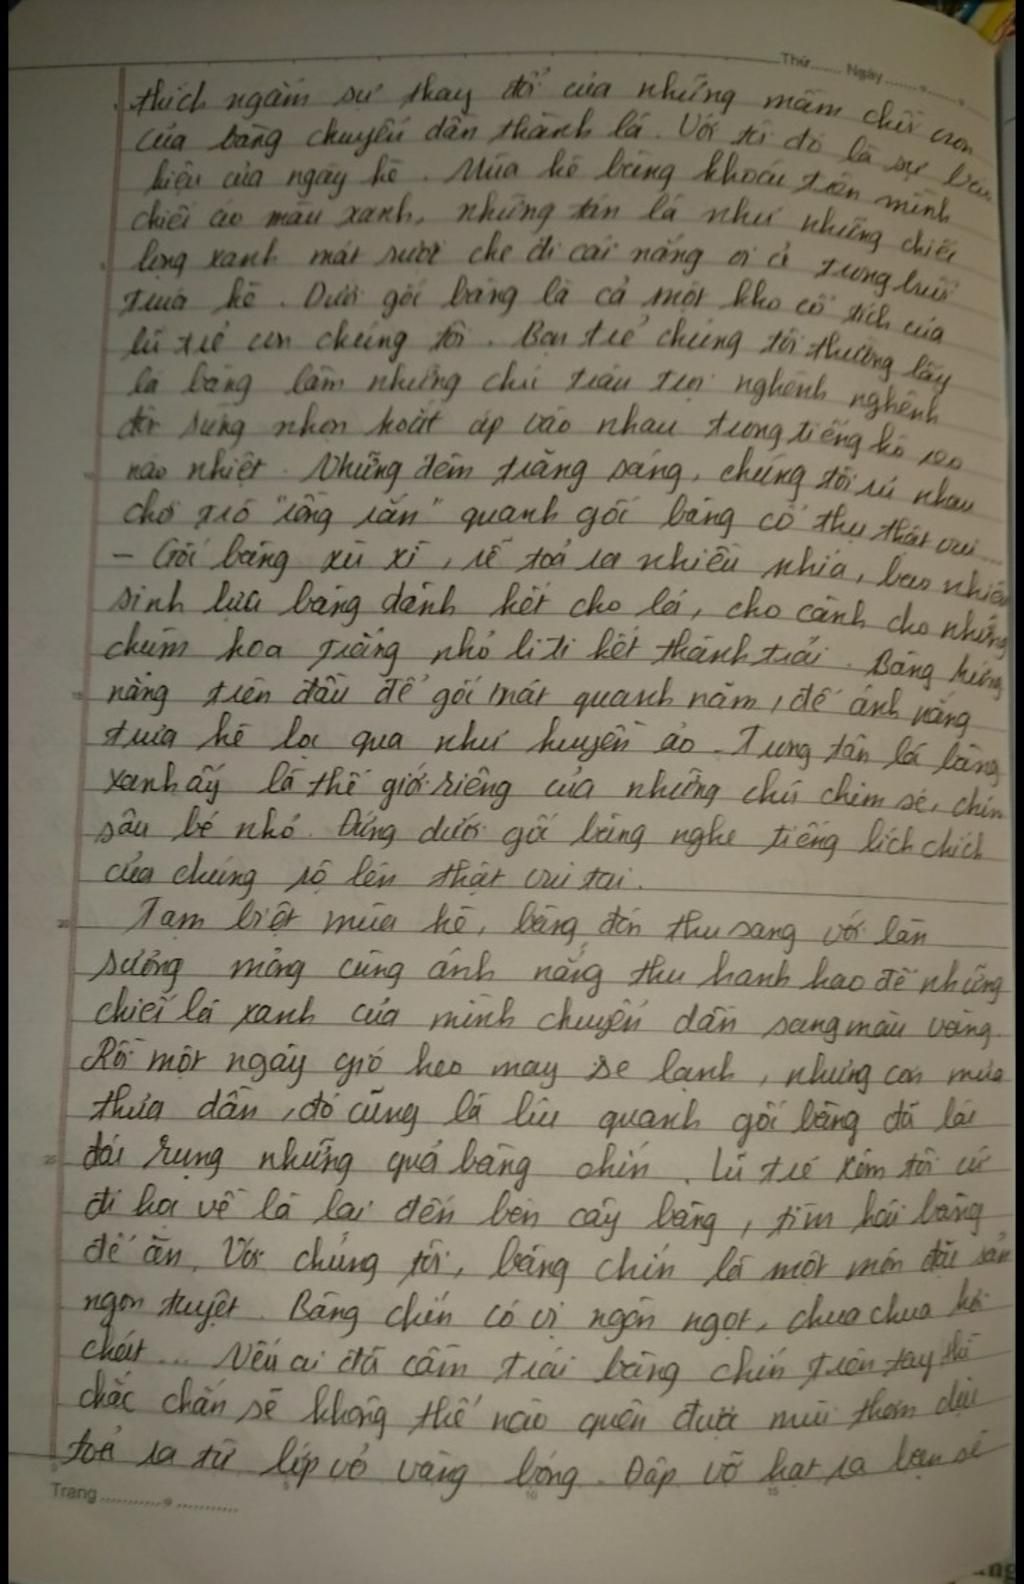 Thứ....... Ngày...............
thích ngắm sự thay đổi của những mầm chồi non
của bàng chuyển dần thành lá. Với tôi đó là sự báo
hiệu của ngày hè. Mùa hè bàng khoác trên mình
chiếc áo màu xanh, những tán lá như những chiếc
lọng xanh mát rượi che đi cái nắng oi ả trong buổi
trưa hè. Dưới gốc bàng là cả một kho cổ tích của
lũ trẻ con chúng tôi. Bọn trẻ chúng tôi thường lấy
lá bàng làm những chú trâu trọi nghênh nghênh
đôi sừng nhọn hoắt áp vào nhau trong tiếng hò reo
náo nhiệt. Những đêm trăng sáng, chúng tôi rủ nhau
chơi trò "rồng rắn" quanh gốc bàng cổ thụ thật vui
- Gốc bàng xù xì, rễ toả ra nhiều nhía, bao nhiêu
sinh lực bàng dành hết cho lá, cho cành cho những
chùm hoa trắng nhỏ li ti kết thành trái. Bàng hứng
nắng trên đầu để gốc mát quanh năm, để ánh nắng
trưa hè lọc qua như huyền ảo. Trong tán lá bàng
xanh ấy là thế giới riêng của những chú chim sẻ, chim
sâu bé nhỏ. Đứng dưới gốc bàng nghe tiếng lích chích
của chúng rộ lên thật vui tai.
Tạm biệt mùa hè, bàng đón thu sang với làn
sương mỏng cùng ánh nắng thu hanh hao để những
chiếc lá xanh của mình chuyển dần sang màu vàng.
Rồi một ngày gió heo may se lạnh, những cơn mưa
thưa dần, đó cũng là lúc quanh gốc bàng đã lác
đác rụng những quả bàng chín. Lũ trẻ xóm tôi cứ
đi học về là lại đến bên cây bàng, tìm hái bàng
để ăn. Với chúng tôi, bàng chín là một món đặc sản
ngon tuyệt. Bàng chín có vị ngòn ngọt, chua chua hơi
chát... Nếu ai đã cầm trái bàng chín trên tay thì
chắc chắn sẽ không thể nào quên được mùi thơm dịu
toả ra từ lớp vỏ vàng bóng. Đập vỡ hạt ra bạn sẽ
Trang...............